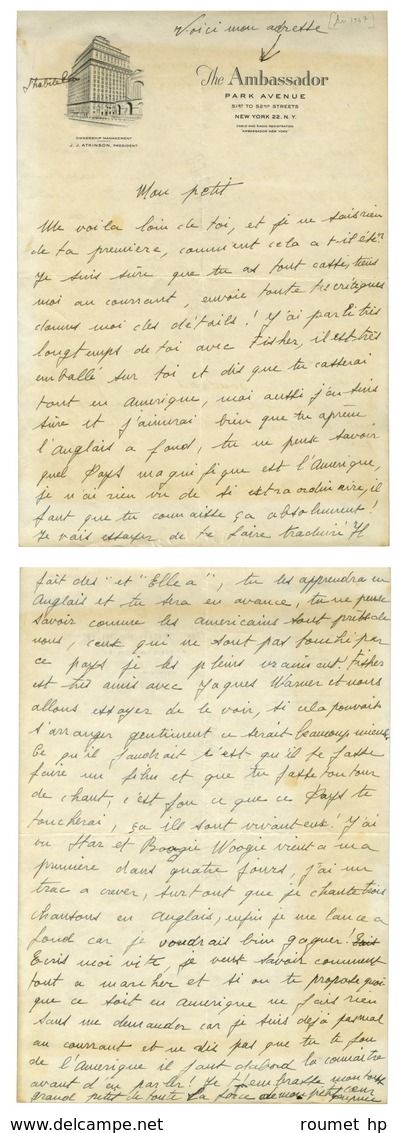 Voici mon adresse
[Av. 1947]
J'habite la
The Ambassador
PARK AVENUE
51ST TO 52ND STREETS
NEW YORK 22. N.Y.
CABLE AND RADIO REGISTRATION
"AMBASSADOR NEW YORK"
OWNERSHIP MANAGEMENT
J. J. ATKINSON, PRESIDENT
Mon petit
Me voila loin de toi, et je ne sais rien
de ta première, comment cela a t-il été?
Je suis sûre que tu as tout cassé, tiens
moi au courrant, envoie toute tes critiques
donnes moi des détails! J'ai parlé très
longtemps de toi avec Fisher, il est très
emballé sur toi et dis que tu casserai
tout en Amerique, moi aussi j'en suis
sûre et j'aimerai bien que tu aprene
l'anglais a fond, tu ne peux savoir
quel Pays magnifique est l'Amerique,
je n'ai rien vu de si extraordinaire, il
faut que tu connaisse ça absolument!
Je vais essayer de te faire traduire "Il
fait des" et "Elle a", tu les apprendra en
Anglais et tu sera en avance, tu ne peux
savoir comme les americains sont près de
nous, ceux qui ne sont pas touché par
ce pays je les pleins vraiment. Fisher
est très amis avec Jaques Warner et nous
allons essayer de le voir, si cela pouvait
s'arranger gentiment ce serait beaucoup mieux.
Ce qu'il faudrait c'est qu'il te fasse
faire un film et que tu fasse ton tour
de chant, c'est fou ce que ce Pays te
toucherai, ça ils sont vivant eux! J'ai
vu Star et Boogie Woogie vient a ma
première dans quatre jours, j'ai un
trac a crever, surtout que je chante trois
chansons en Anglais, enfin je me lance a
fond car je voudrais bien gagner!
Ecris moi vite, je veux savoir comment
tout a marcher et si on te propose quoi
que ce soit en amerique ne fais rien
sans me demander car je suis dejà pas mal
au courrant et ne dis pas que tu te fou
de l'Amerique il faut dabord la connaitre
avant d'en parler! Je t'embrasse mon tout
grand petit de toute la force de mon petit coeur